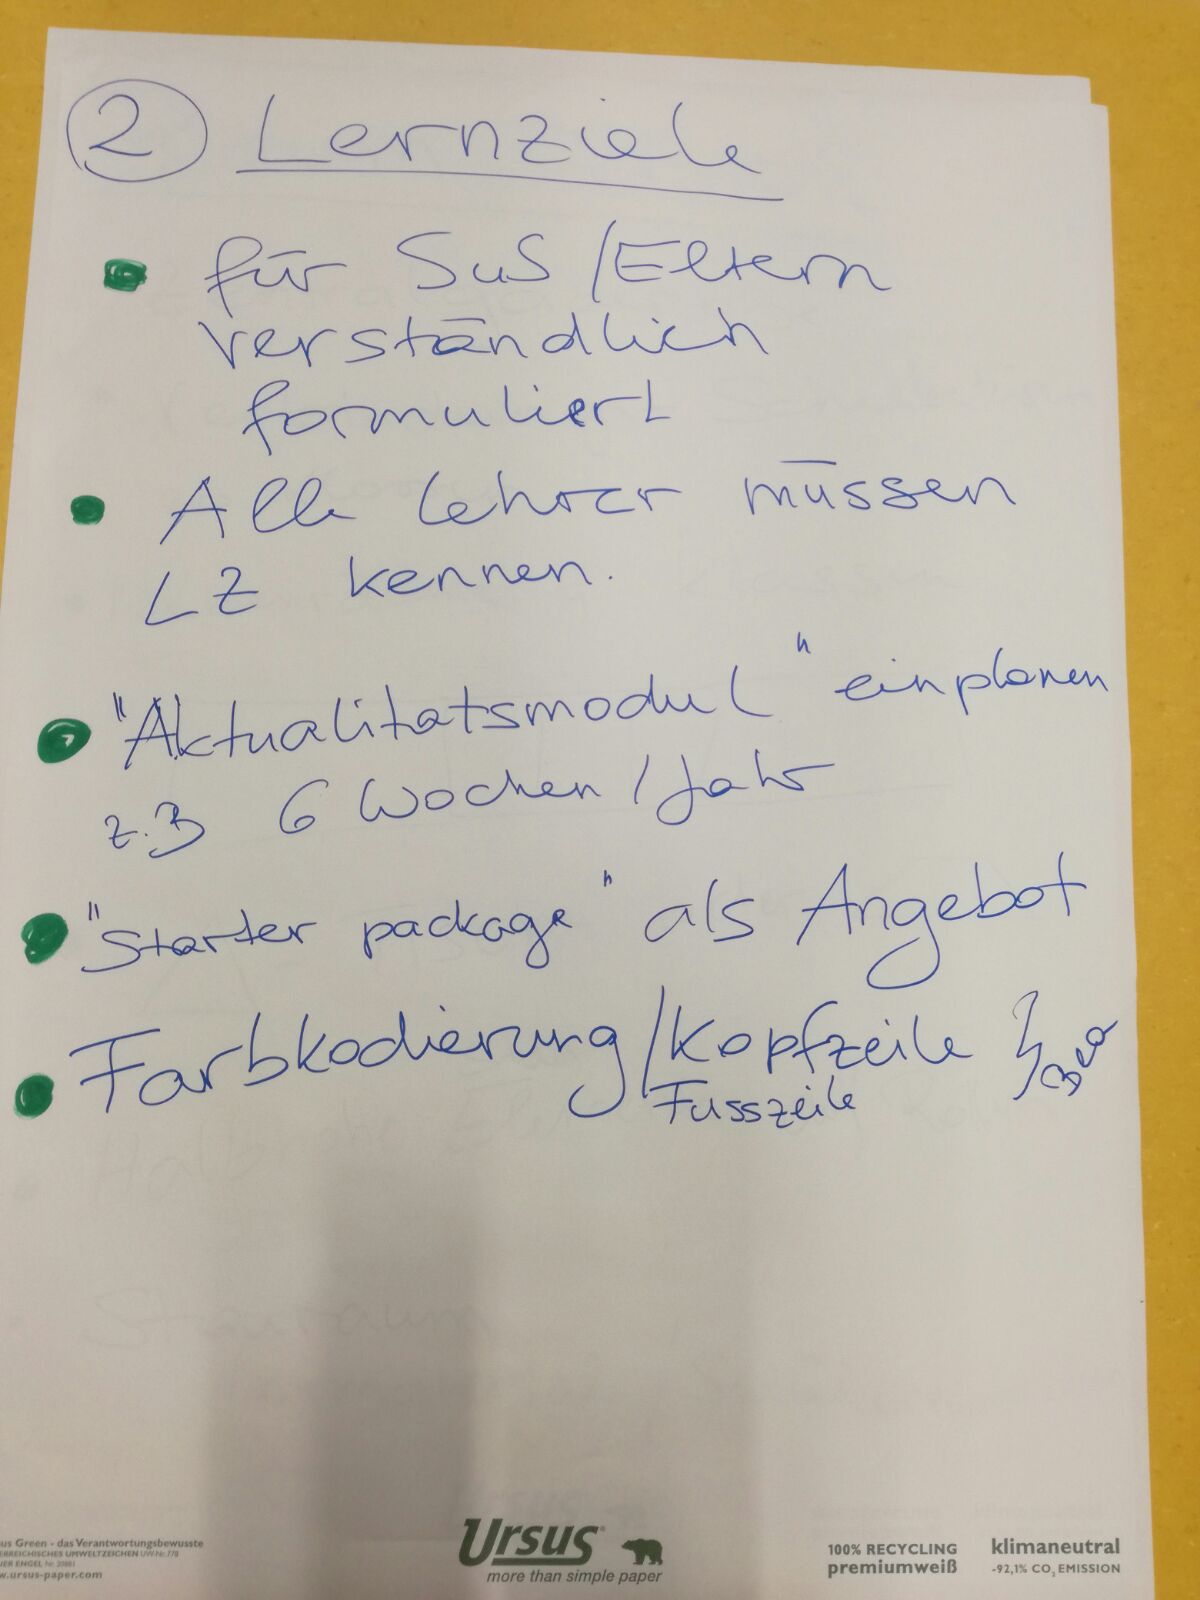 2 Lernziele
für SuS / Eltern
verständlich
formuliert
Alle Lehrer müssen
LZ kennen.
"Aktualitätsmodul" einplanen
z.B 6 Wochen / Jahr
"Starter package" als Angebot
Farbkodierung / Kopfzeile
Fusszeile
Ursus
more than simple paper
us Green - das Verantwortungsbewusste
ERREICHISCHES UMWELTZEICHEN UW-Nr. 778
w.ursus-paper.com
100% RECYCLING
premiumweiß
klimaneutral
-92,1% CO₂ EMISSION